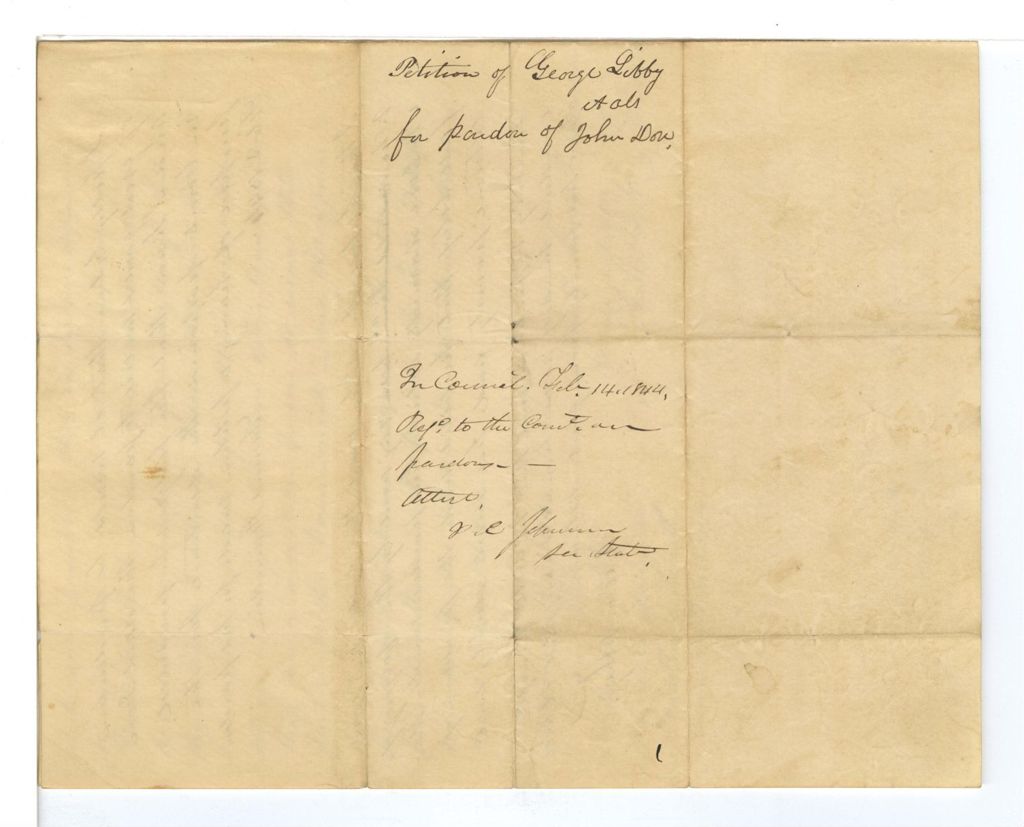 Petition of George Libby
& als
for pardon of John Dow.
In Council. Feb. 14. 1844.
Refd. to the Comtee. on
pardons —
Attest,
P. C. Johnson
Sec State.